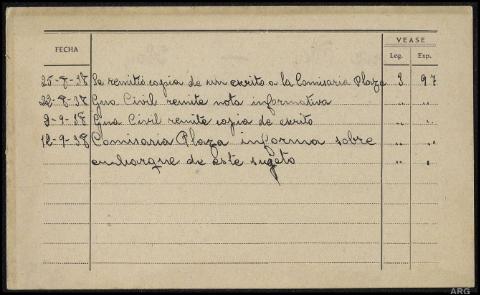 VEASE
FECHA Leg. Exp.
25-8-38 Se remitió copia de un escrito a la Comisaria Plaza 3 97
22-8-38 Gua Civil remite nota informativa " "
9-9-38 Gua Civil remite copia de escrito " "
12-9-38 Comisaria Plaza informa sobre
embarque de este sugeto " "
ARG